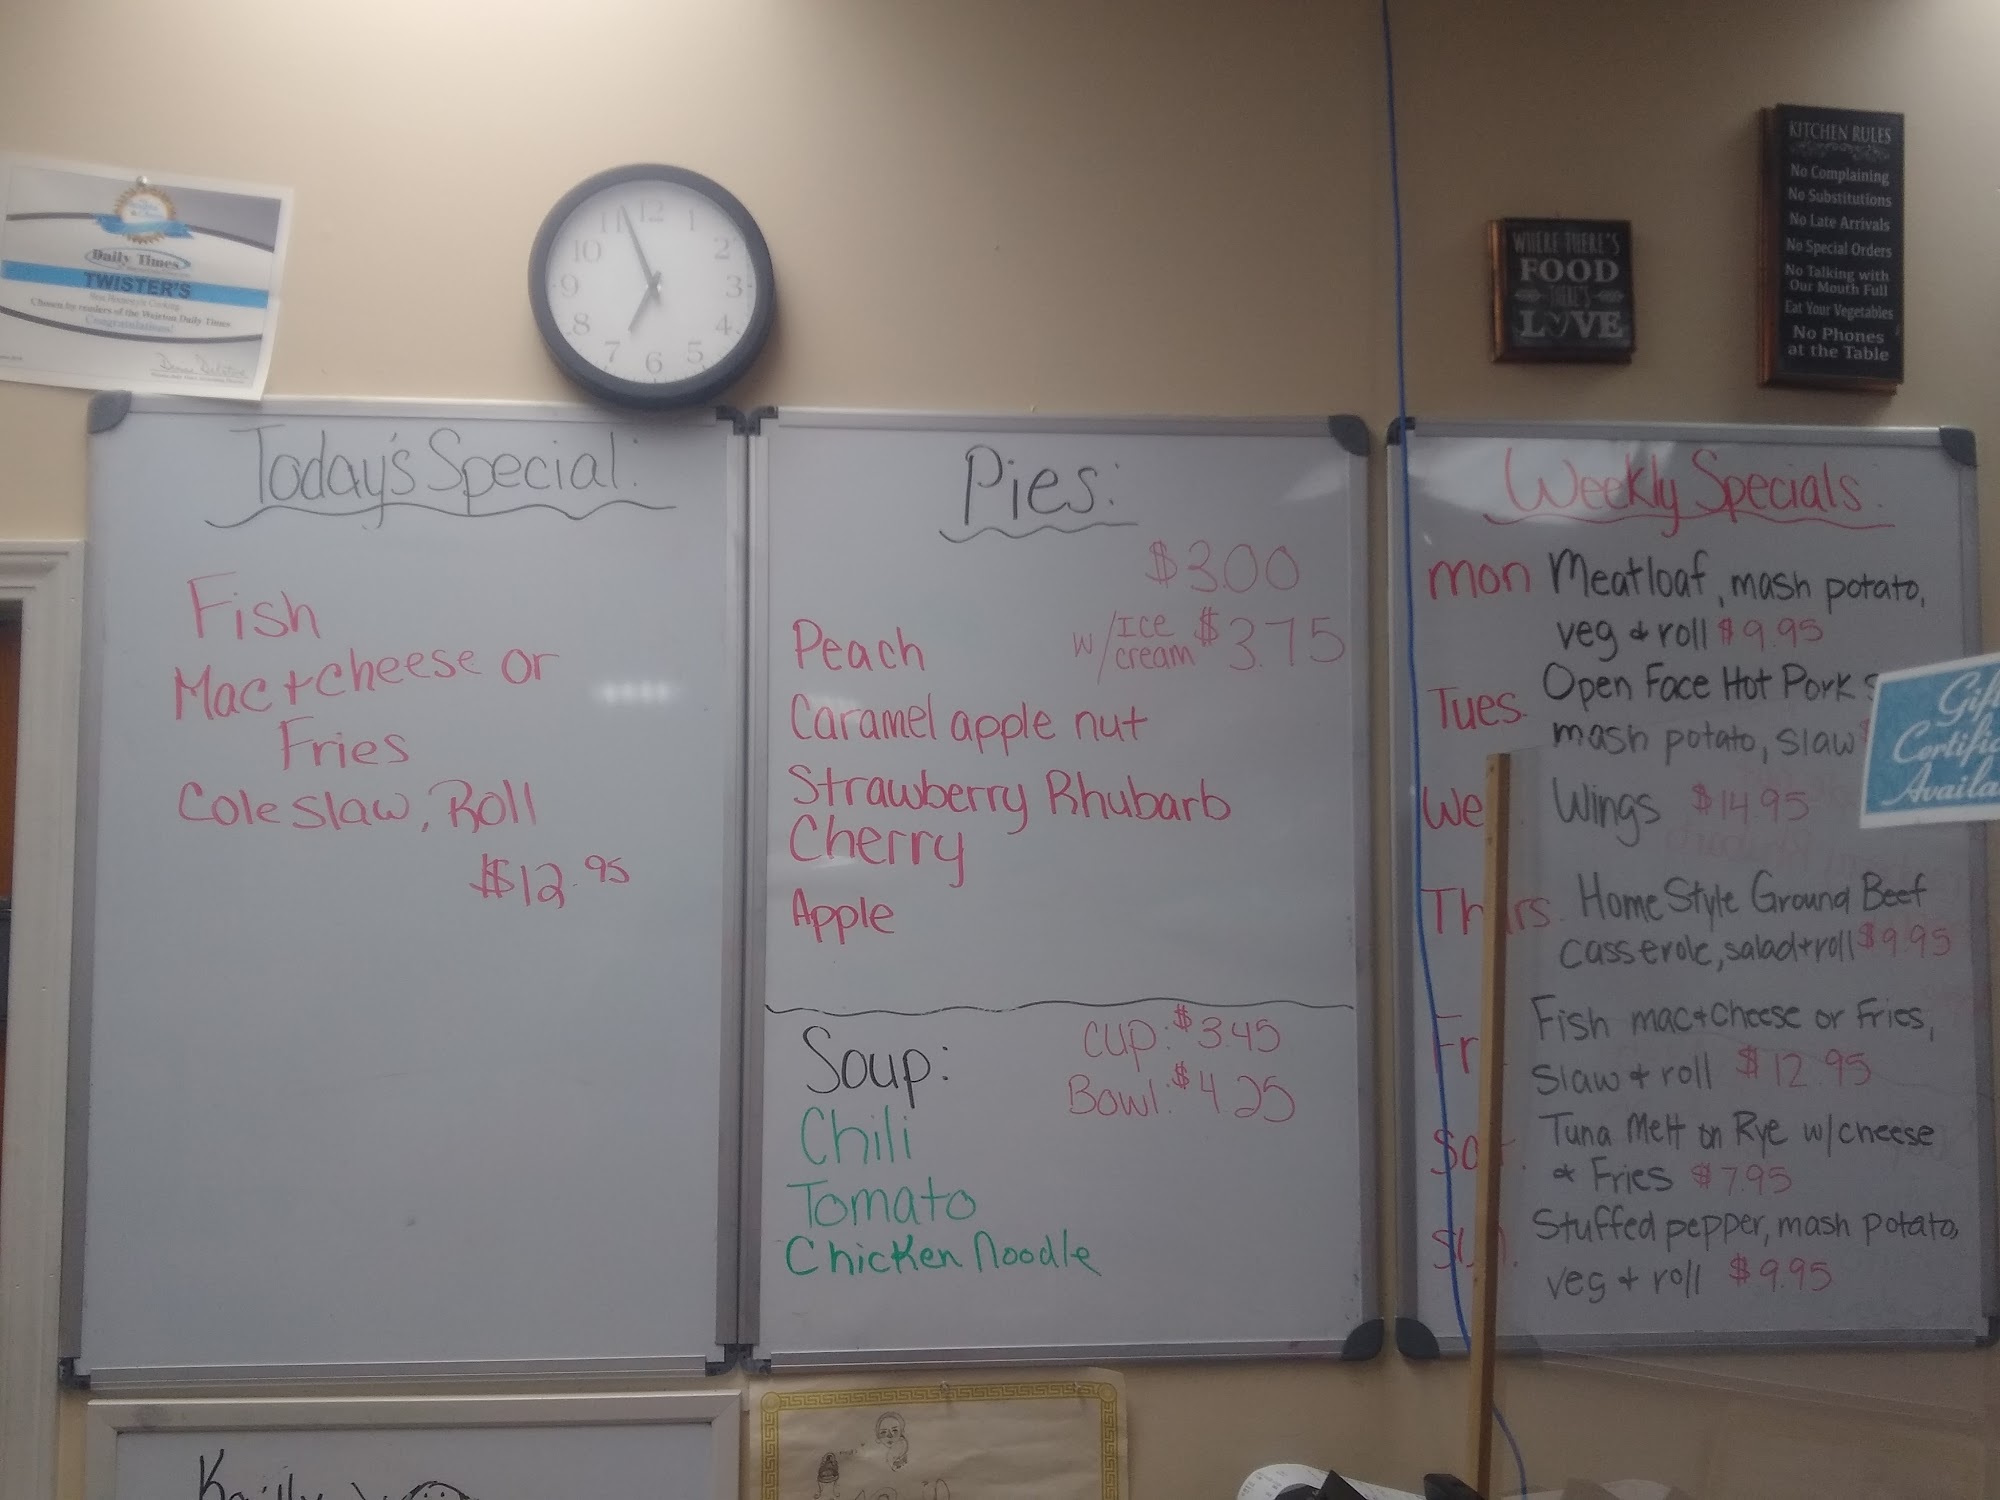 Daily Times
TWISTER'S
Best Homestyle Cooking
Chosen by readers of the Weirton Daily Times
Congratulations!
12
1
2
3
4
5
6
7
8
9
10
11
WHERE THERE'S
FOOD
THERE'S
LOVE
KITCHEN RULES
No Complaining
No Substitutions
No Late Arrivals
No Special Orders
No Talking with
Our Mouth Full
Eat Your Vegetables
No Phones
at the Table
Today's Special:
Fish
Mac + cheese or
Fries
Cole slaw, Roll
$12.95
Pies:
$3.00
w/ Ice cream $3.75
Peach
Caramel apple nut
Strawberry Rhubarb
Cherry
Apple
Soup:
Cup: $3.45
Bowl: $4.25
Chili
Tomato
Chicken Noodle
Weekly Specials:
Mon Meatloaf, mash potato,
veg + roll $9.95
Tues. Open Face Hot Pork
mash potato, slaw
We Wings $14.95
Thurs. Home Style Ground Beef
Casserole, salad + roll $9.95
Fr Fish mac + cheese or Fries,
Slaw + roll $12.95
Sat. Tuna Melt on Rye w/ cheese
+ Fries $7.95
Sun. Stuffed pepper, mash potato,
veg + roll $9.95
Gift
Certific
Availa